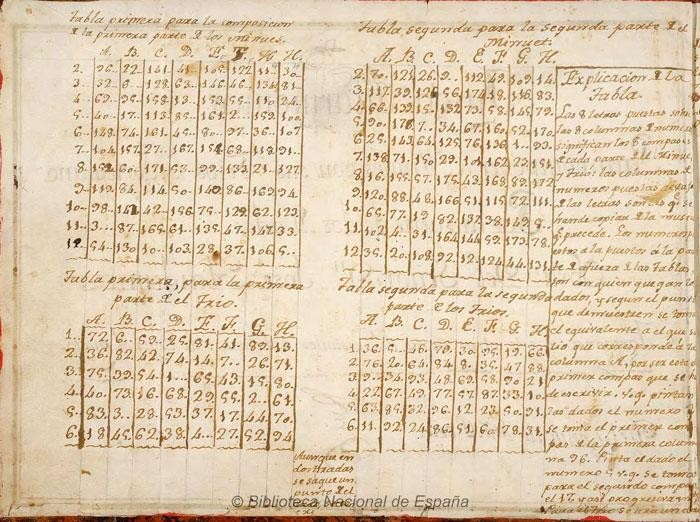 Tabla primera para la composicion
la primera parte los minues.
A. B. C. D. E. F. G. H.
2. 96. 22. 141. 41. 105. 122. 11. 30.
3. 32. 6. 128. 63. 146. 46. 134. 81.
4. 69. 95. 158. 13. 153. 55. 110. 24.
5. 40. 17. 113. 85. 161. 2. 159. 100.
6. 148. 74. 161. 45. 80. 97. 36. 107
7. 104. 157. 27. 167. 154. 68. 118. 91.
8. 152. 60. 171. 53. 99. 133. 21. 127.
9. 119. 84. 114. 50. 140. 86. 169. 94.
10. 98. 142. 42. 156. 75. 129. 62. 123.
11. 3. 87. 165. 61. 135. 47. 147. 33.
12. 54. 130. 10. 103. 28. 37. 106. 5.
Tabla primera, para la primera
parte el Trio.
A. B. C. D. E. F. G. H.
1. 72. 6. 59. 25. 81. 41. 89. 13.
2. 36. 82. 42. 74. 14. 7. 26. 71.
3. 75. 39. 54. 1. 65. 43. 15. 80.
4. 40. 73. 16. 68. 29. 55. 2. 61.
5. 83. 3. 28. 53. 37. 17. 44. 70.
6. 18. 45. 62. 38. 4. 27. 52. 94
Tabla segunda para la segunda parte el
Minuet.
A. B. C. D. E. F. G. H.
2. 70. 121. 26. 9. 112. 49. 109. 14.
3. 117. 39. 126. 56. 174. 18. 116. 83.
4. 66. 139. 15. 132. 73. 58. 145. 79.
5. 90. 176. 7. 34. 67. 160. 52. 170.
6. 25. 143. 64. 125. 76. 136. 1. 93.
7. 138. 71. 150. 29. 101. 162. 23. 151.
8. 16. 155. 57. 175. 43. 168. 89. 172.
9. 120. 88. 48. 166. 51. 115. 72. 111.
10. 65. 77. 19. 82. 137. 38. 149. 8.
11. 102. 4. 31. 164. 144. 59. 173. 78.
12. 35. 20. 108. 92. 12. 124. 44. 131.
Talla segunda para la segunda
parte los Trios.
A. B. C. D. E. F. G. H.
1. 36. 5. 46. 79. 30. 95. 19. 66.
2. 76. 20. 64. 84. 8. 35. 47. 88.
3. 9. 34. 93. 48. 69. 58. 90. 21
4. 22. 67. 49. 77. 57. 87. 33. 10.
5. 63. 85. 32. 96. 12. 23. 50. 91.
6. 11. 92. 24. 86. 51. 60. 78. 31.
Aunque en
dos tiradas
se saque un
punto el
Explicacion la
Tabla.
Las 8 letras puestas sobre
las 8 columnas numeros
significan los 8 compases
cada parte el Minue
y Trio: las columnas
numeros puestas debajo
las letras son las q. se
han de copiar la musica
precede. Los numeros
puestos a la parte
afuera las Tablas
son con quien que gan los
dados, y segun el punto
que demuestren se toma
el equivalente a el que
tio que corresponde la
columna A, por ser este
primer compas que se
de escrivir. v.g. pintan
las dados el numero
se toma el primer com-
pas la primera colum-
na 96. Pinta el dado el
numero 5 v.g. se toma
para el segundo compas
el 17. y asi progresivamente
Para el Trio se usa un da
© Biblioteca Nacional de España